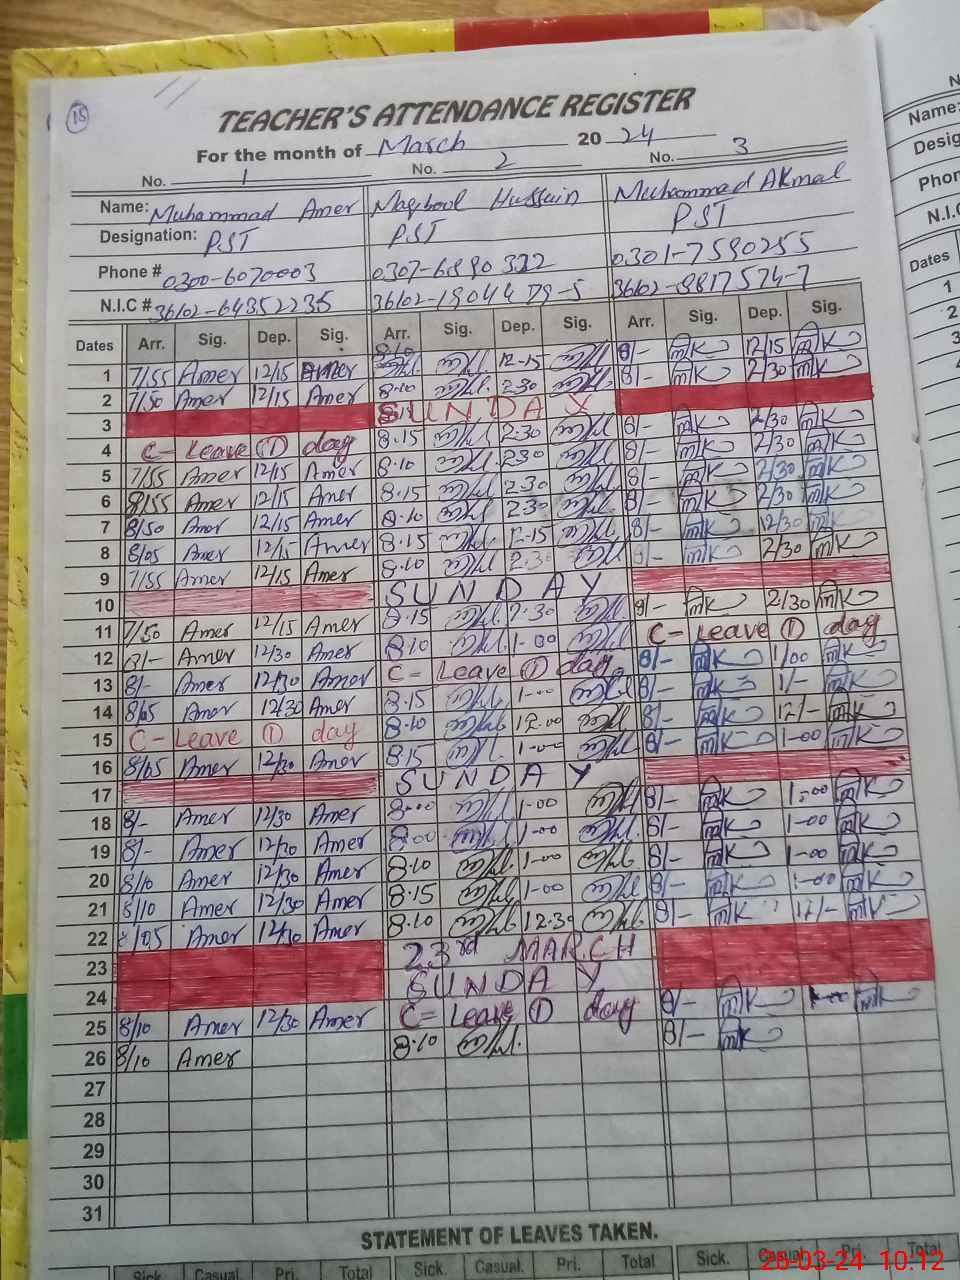 15
TEACHER'S ATTENDANCE REGISTER
For the month of March 2024
No. 1 No. 2 No. 3
Name: Muhammad Amer Maqbool Hussain Muhammad Akmal
Designation: PST PST PST
Phone # 0300-6070003 0307-6890322 0301-7590255
N.I.C # 36102-64352235 36102-19044 79-5 36102-9817574-7
Dates Arr. Sig. Dep. Sig. Arr. Sig. Dep. Sig. Arr. Sig. Dep. Sig.
1 7/55 Amer 12/15 Amer 8.10 12-15 8/- mK 12/15 mK
2 7/50 Amer 12/15 Amer 8.10 2.30 8/- mK 2/30 mK
3 SUNDAY
4 C- Leave ① day 8.15 2.30 8/- mK 2/30 mK
5 7/55 Amer 12/15 Amer 8.10 2.30 8/- mK 2/30 mK
6 8/55 Amer 12/15 Amer 8.15 2.30 8/- mK 2/30 mK
7 8/50 Amer 12/15 Amer 8.10 2.30 8/- mK 2/30 mK
8 8/05 Amer 12/15 Amer 8.15 12-15 8/- mK 12/30 mK
9 7/55 Amer 12/15 Amer 8.10 2.30 8/- mK 2/30 mK
10 SUNDAY
11 7/50 Amer 12/15 Amer 8.15 2.30 8/- mK 2/30 mK
12 8/- Amer 12/30 Amer 8.10 1-00 C- Leave ① day
13 8/- Amer 12/30 Amer C- Leave ① day 8/- mK 1/00 mK
14 8/05 Amer 12/30 Amer 8.15 1-00 8/- mK 1/- mK
15 C- Leave ① day 8.10 12.00 8/- mK 12/- mK
16 8/05 Amer 12/30 Amer 8.15 1-00 8/- mK 1-00 mK
17 SUNDAY
18 8/- Amer 12/30 Amer 8.00 1-00 8/- mK 1-00 mK
19 8/- Amer 12/30 Amer 8.00 1-00 8/- mK 1-00 mK
20 8/10 Amer 12/30 Amer 8.10 1-00 8/- mK 1-00 mK
21 8/10 Amer 12/30 Amer 8.15 1-00 8/- mK 1-00 mK
22 8/05 Amer 12/30 Amer 8.10 12.30 8/- mK 12/- mK
23 23rd MARCH
24 SUNDAY
25 8/10 Amer 12/30 Amer C- Leave ① day 8/- mK 1-00 mK
26 8/10 Amer 8.10 8/- mK
27
28
29
30
31
STATEMENT OF LEAVES TAKEN.
Sick. Casual. Pri. Total Sick. Casual. Pri. Total Sick. Casual. Pri. Total
Name:
Phon
N.I.C
Dates
1
2
3
26-03-24 10:12